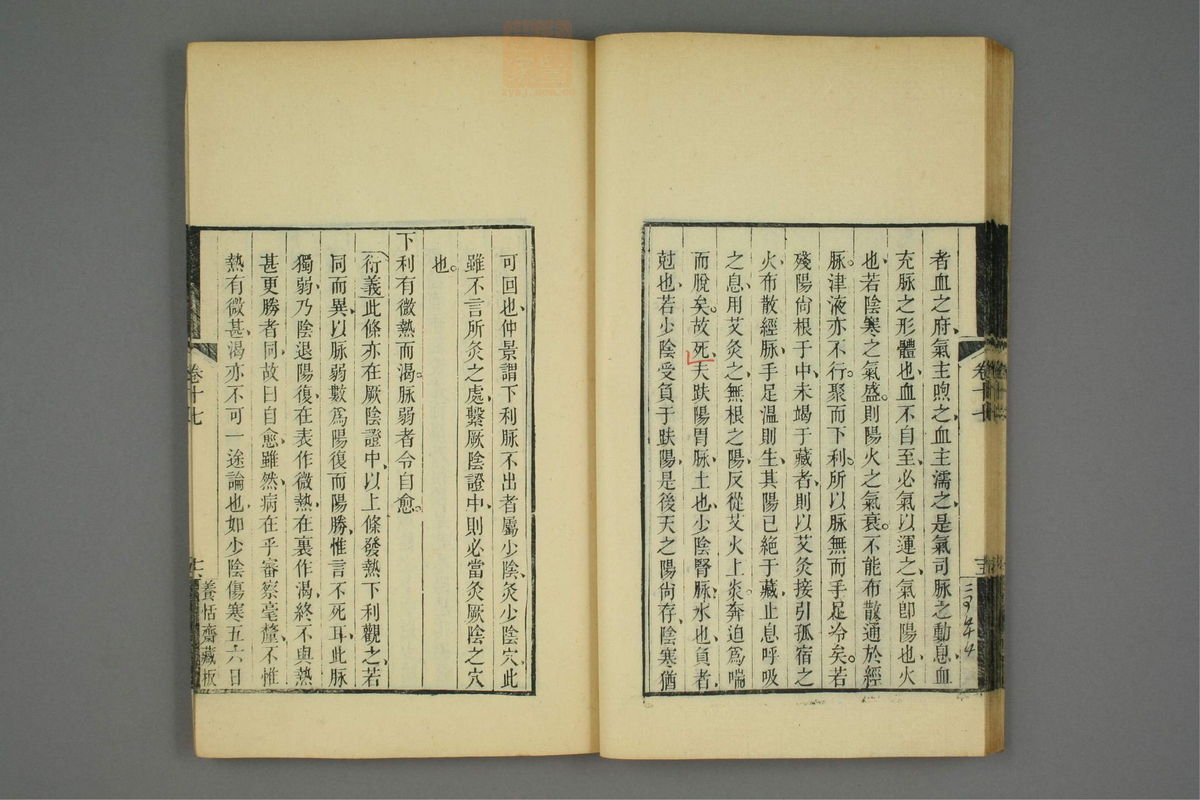 者血之府氣主煦之血主濡之是氣司脉之動息血
充脉之形體也血不自至必氣以運之氣卽陽也火
也若陰寒之氣盛則陽火之氣衰不能布散通於經
脉津液亦不行聚而下利所以脉無而手足冷矣若
殘陽尙根于中未竭于藏者則以艾灸接引孤宿之
火布散經脉手足溫則生其陽已絶于藏止息呼吸
之息用艾灸之無根之陽反從艾火上炎奔迫爲喘
而脫矣故死夫趺陽胃脉土也少陰腎脉水也負者
尅也若少陰受負于趺陽是後天之陽尙存陰寒猶
卷十七
可回也仲景謂下利脉不出者屬少陰灸少陰穴此
雖不言所灸之處繫厥陰證中則必當灸厥陰之穴
也
下利有微熱而渴脉弱者令自愈
衍義此條亦在厥陰證中以上條發熱下利觀之若
同而異以脉弱數爲陽復而陽勝惟言不死耳此脉
獨弱乃陰退陽復在表作微熱在裏作渴終不與熱
甚更勝者同故曰自愈雖然病在乎審察毫釐不惟
熱有微甚渴亦不可一途論也如少陰傷寒五六日
卷十七
養恬齋藏板